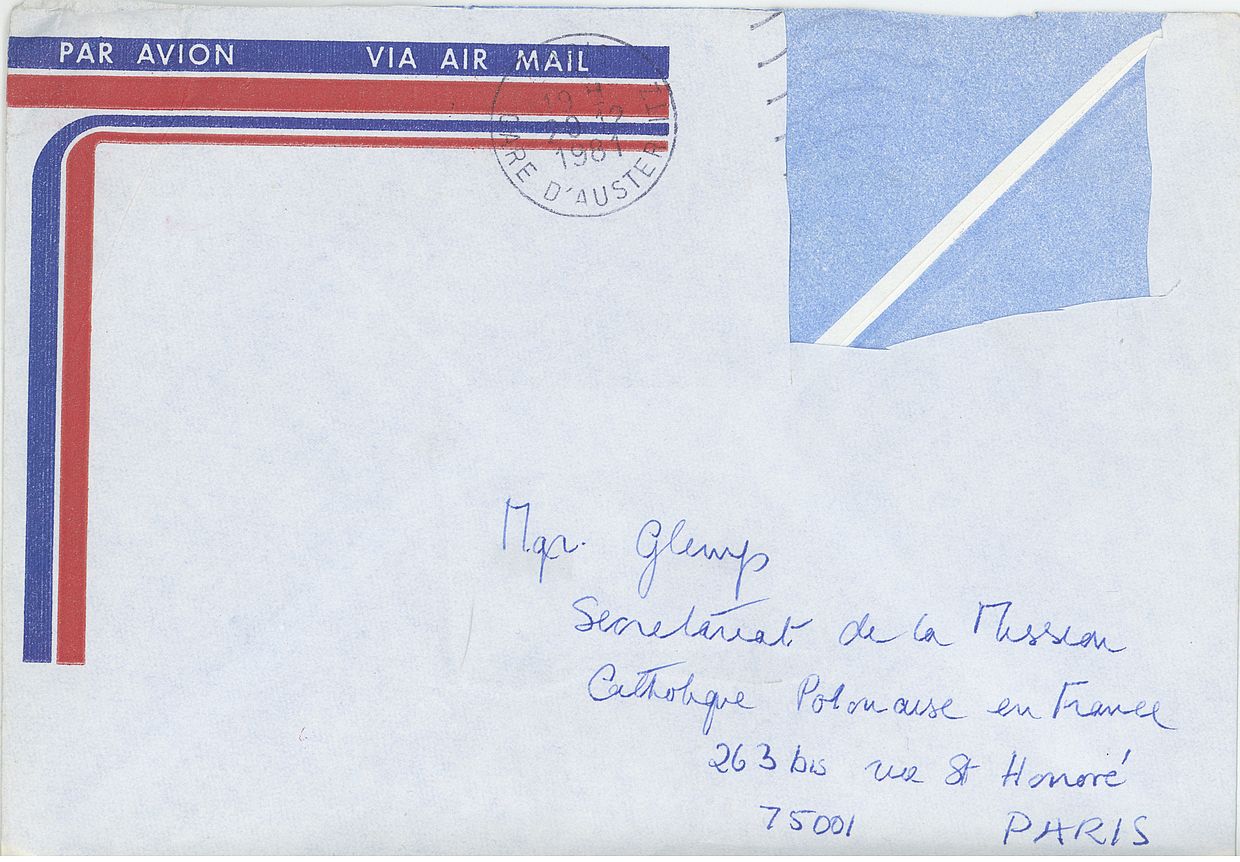 PAR AVION VIA AIR MAIL
19 H
1981
GARE D'AUSTERLITZ
Mgr. Glemp
Secretariat de la Mission
Catholique Polonaise en France
263 bis rue St Honoré
75001 PARIS